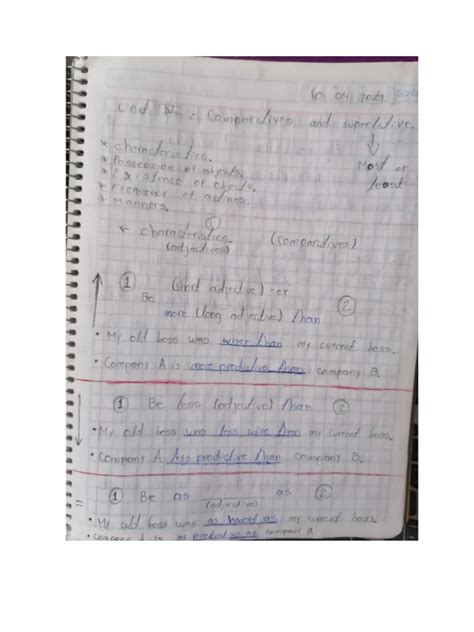 10 04 2021
Unit N=: Comparatives and superlative.
* characteristics.
Most or
* Possession of objects.
least
* Existence of objects.
* Frequency of actions.
* Manners.
1
* characteristics. (comparatives)
(adjectives)
1 (short adjective)-er 2
Be
more (long adjective) than
• My old boss was wiser than my current boss.
• Company A is more productive than company B.
1 Be less (adjective) than 2
• My old boss was less wise than my current boss.
• Company A less productive than company B.
1 Be as as 2
(adjective)
=
• My old boss was as as my current boss.
• company A is as productive as company B